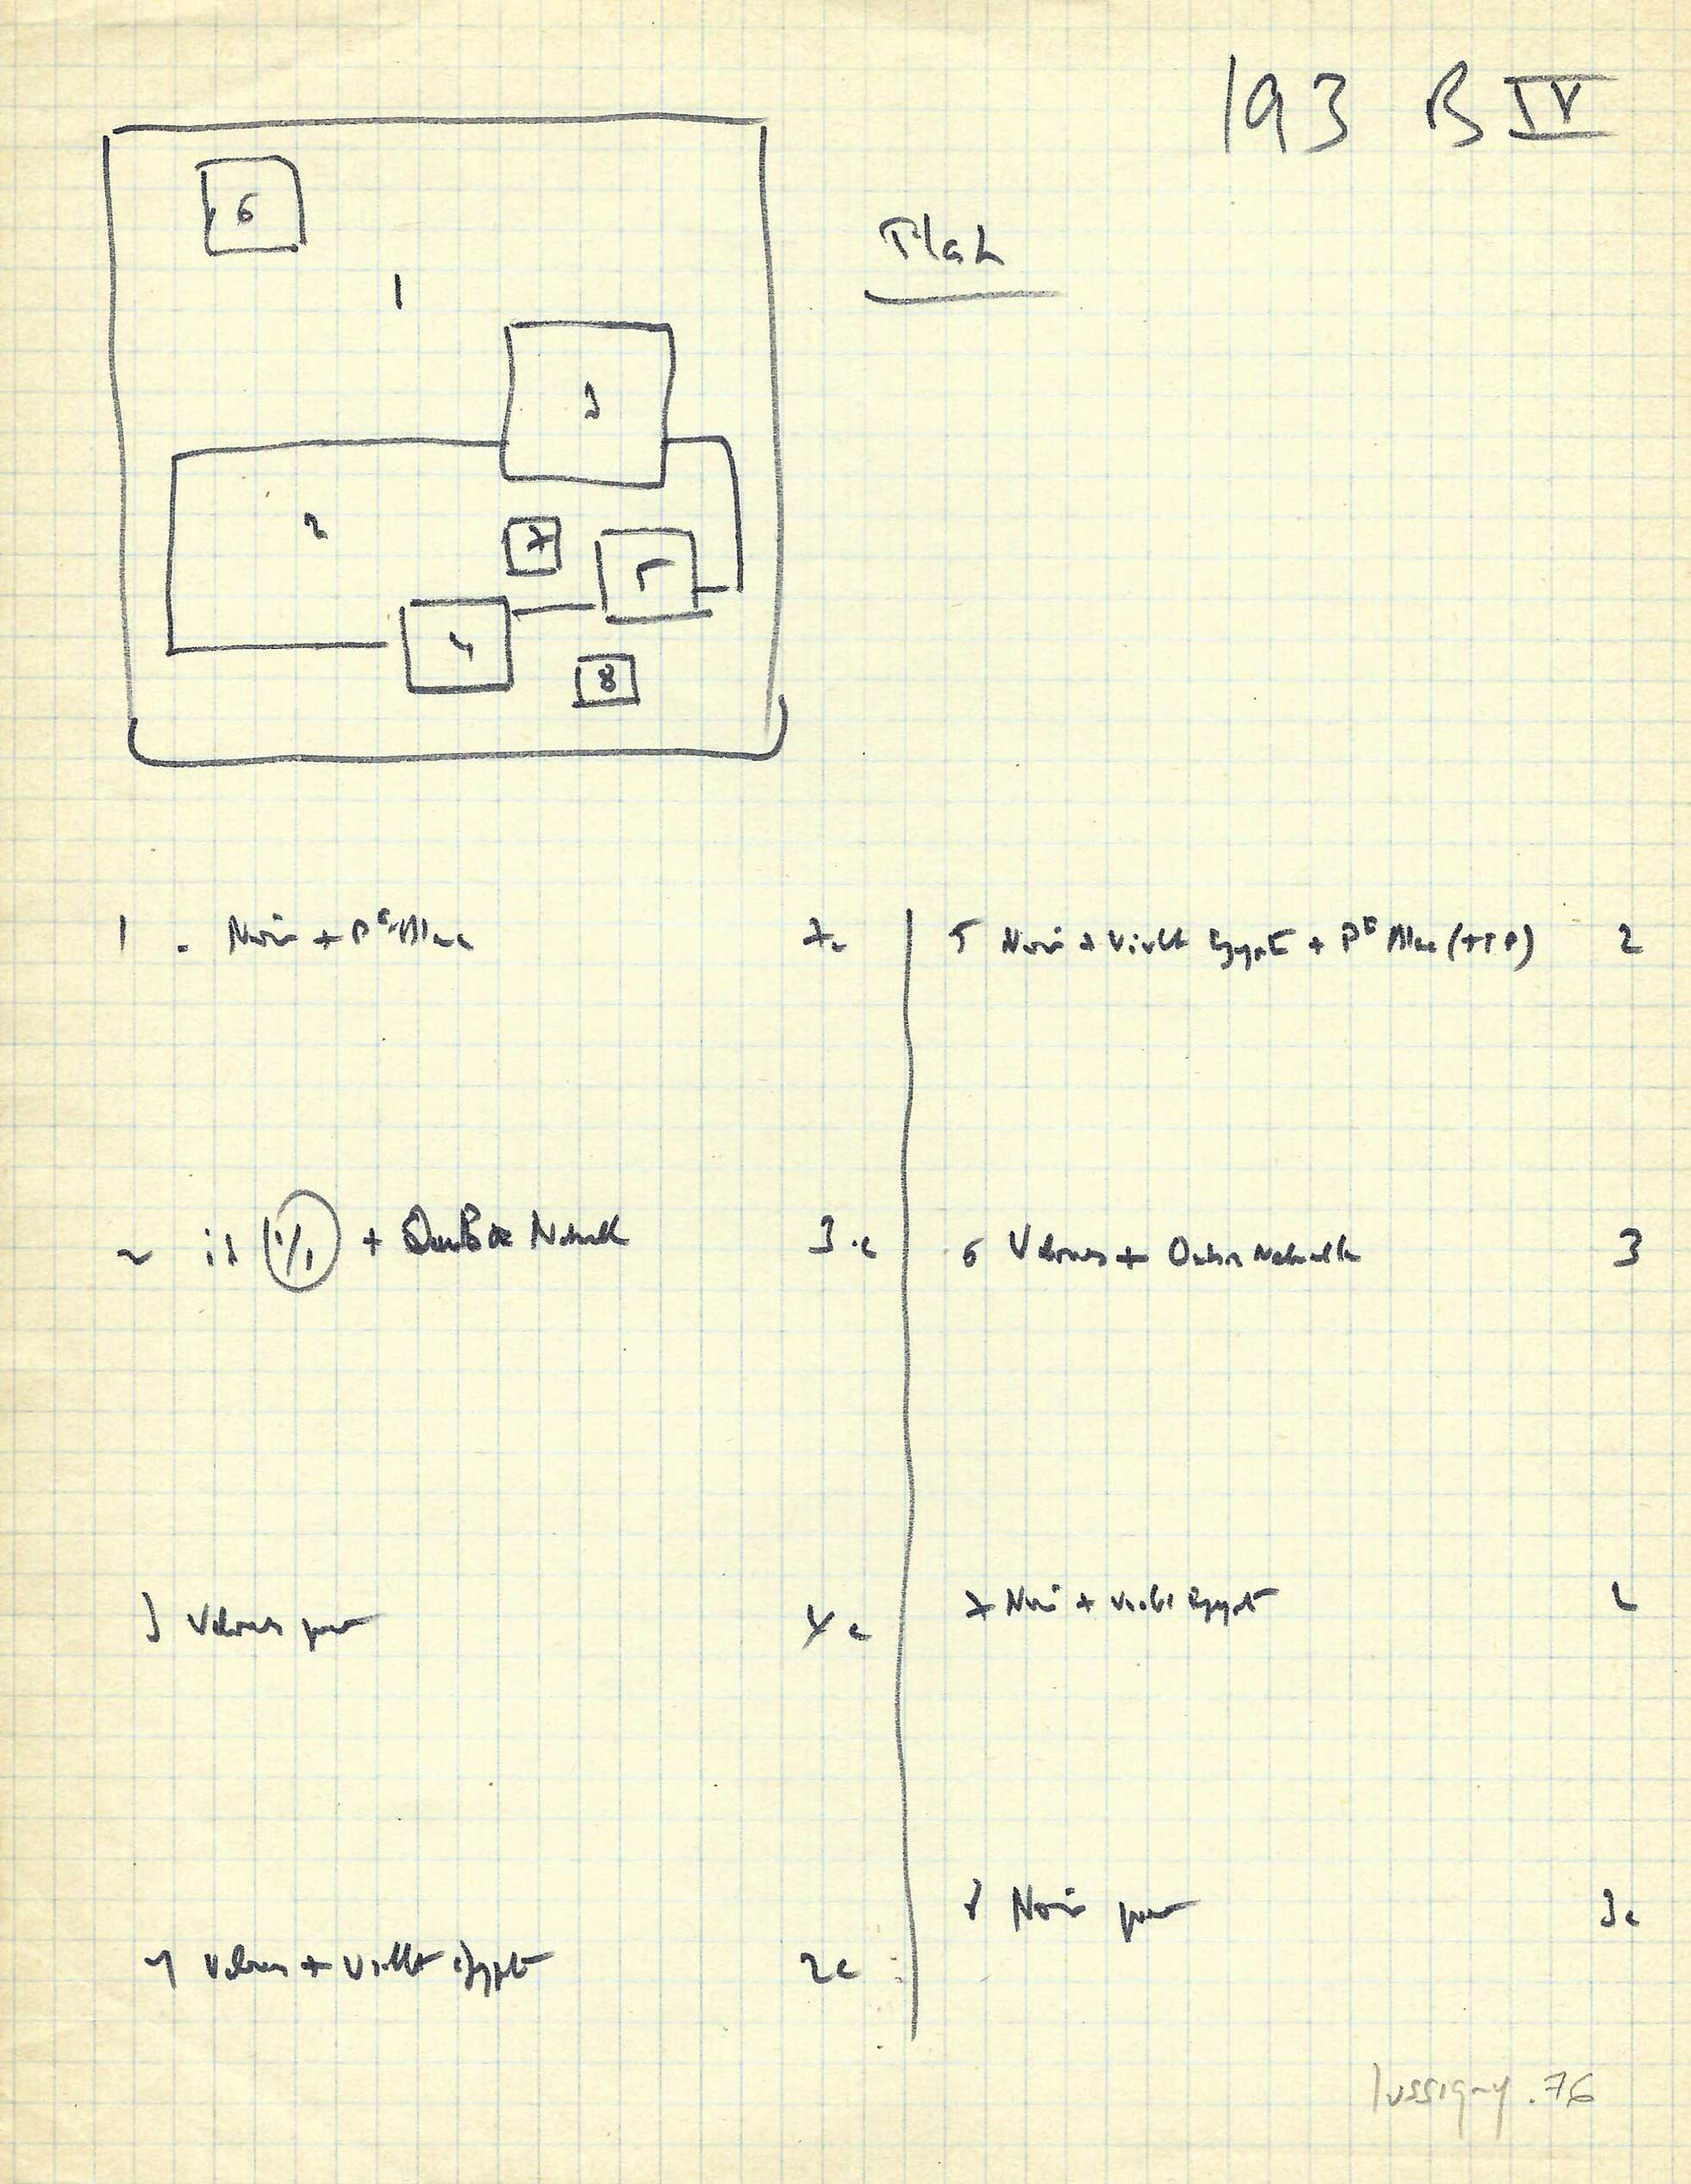 193 B IV
6
1
3
2
7
5
4
8
1 . Noir + Pc Blanc 7c
2 id 1/1 + Ombre Naturelle 3.c
3 Velours pur 4c
4 Velours + Violet Egypte 2c
5 Noir + Violet Egypte + Pt Blanc (+TP) 2
6 Velours + Ombre Naturelle 3
7 Noir + Violet Egypte 2
8 Noir pur 3c
lussigny.76